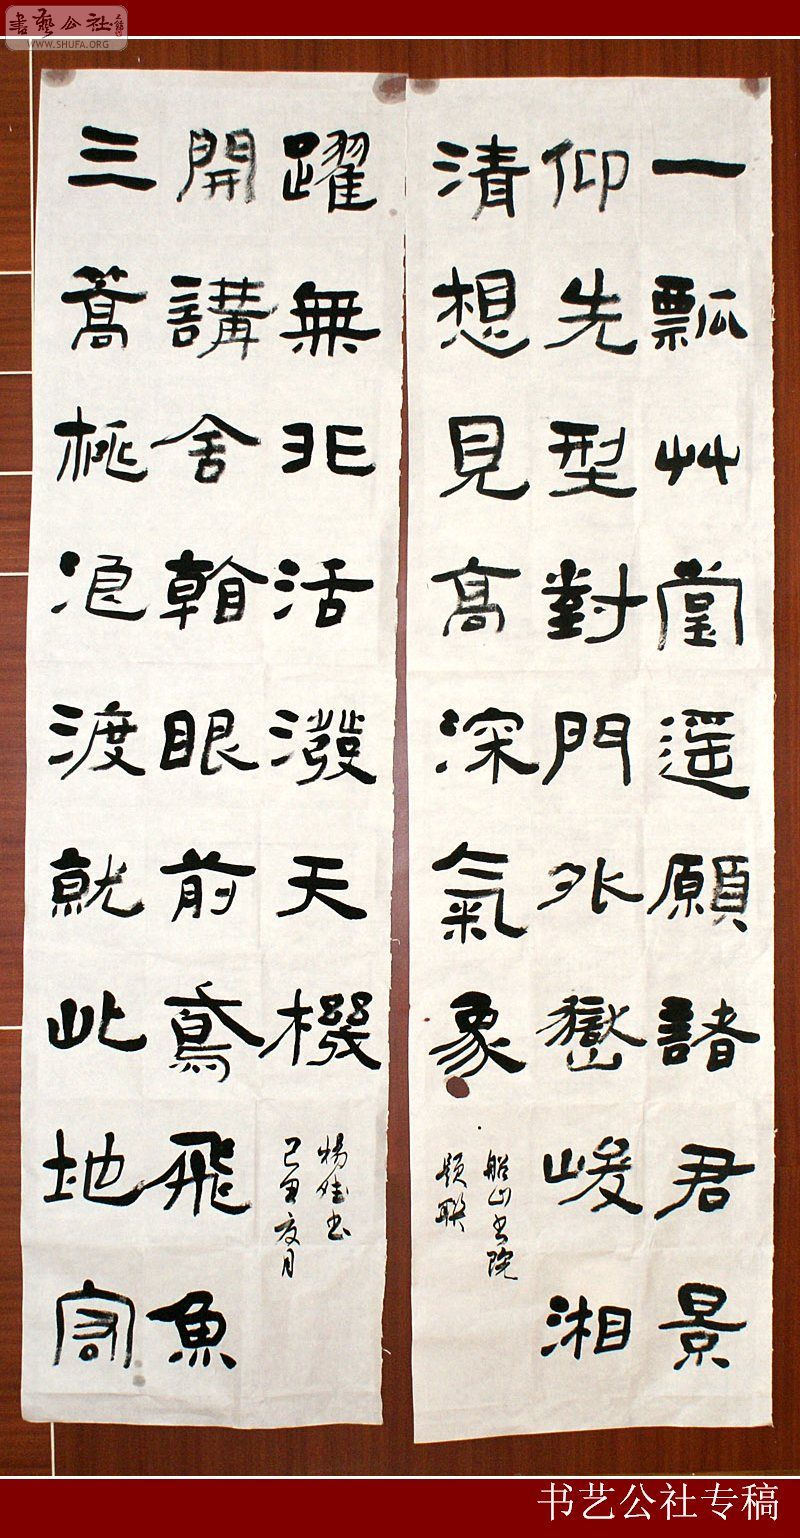 书艺公社
WWW.SHUFA.ORG
一瓢艸堂遥願諸君景
仰先型對門外嶽峻湘
清想見高深氣象
船山书院
题联
三篙桃浪渡就此地宏
開講舍看眼前鳶飛魚
躍無非活潑天機
楊书
己丑夏月
书艺公社专稿